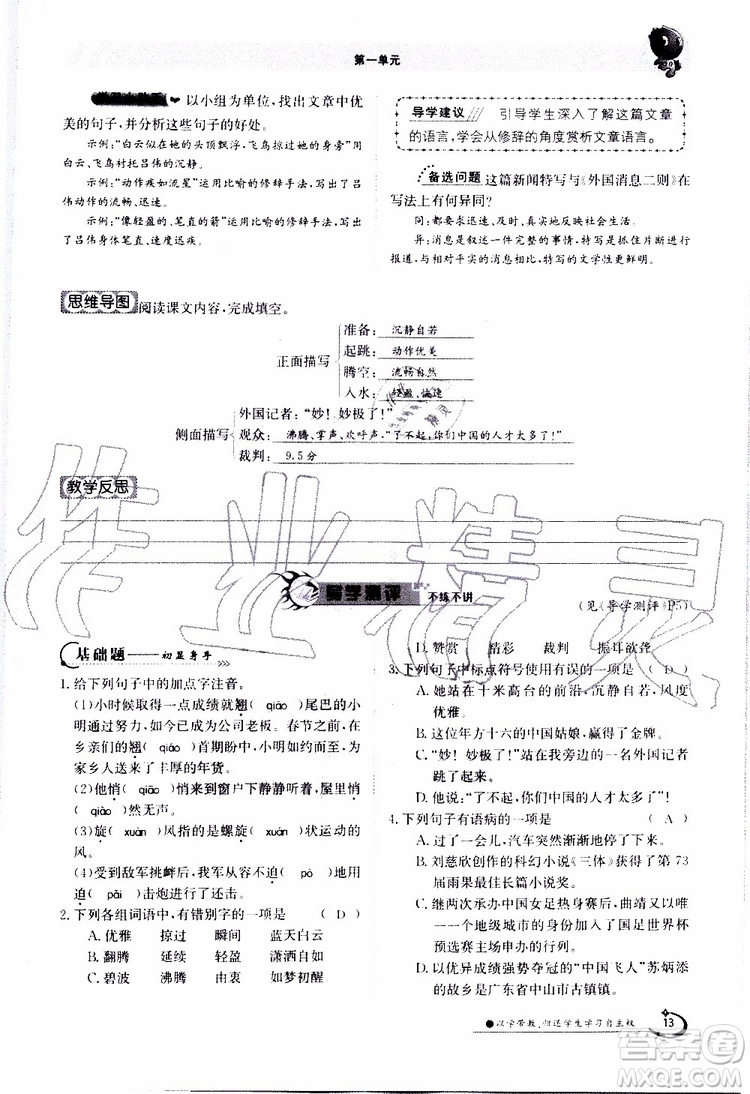 第一单元
以小组为单位,找出文章中优
美的句子,并分析这些句子的好处。
示例:“白云似在她的头顶飘浮,飞鸟掠过她的身旁”用
白云、飞鸟衬托吕伟的沉静。
示例:“动作疾如流星”运用比喻的修辞手法,写出了吕
伟动作的流畅、迅速。
示例:“像轻盈的、笔直的箭”运用比喻的修辞手法,写
出了吕伟身体笔直、迅速迅疾。
导学建议 引导学生深入了解这篇文章
的语言,学会从修辞的角度赏析文章语言。
备选问题 这篇新闻特写与《外国消息二则》在
写法上有何异同?
同:都要求迅速、及时、真实地反映社会生活。
异:消息是叙述一件完整的事情,特写是抓住片断进行
报道,与相对平实的消息相比,特写的文学性更鲜明。
思维导图 阅读课文内容,完成填空。
正面描写
准备: 沉静自若
起跳: 动作优美
腾空: 流畅自然
入水: 轻盈、迅速
侧面描写
外国记者:“妙!妙极了!”
观众: 沸腾、掌声、欢呼声,“了不起,你们中国的人才太多了!”
裁判: 9.5分
教学反思
导学测评 不练不讲
(见《导学测评》P5)
基础题——初显身手
1. 给下列句子中的加点字注音。
(1)小时候取得一点成绩就翘( qiào )尾巴的
小明朋友,如今已成为公司老板。春节之前,在
乡亲们的翘( qiáo )首期盼中,小明如约而至,为
家乡人送来了丰厚的年货。
(2)他悄( qiāo )悄来到窗户下静静听着,屋里悄
( qiǎo )然无声。
(3)旋( xuàn )风指的是螺旋( xuán )状运动的
风。
(4)受到敌军挑衅后,我军从容不迫( pò )地用
迫( pǎi )击炮还击。
2. 下列各组词语中,有错别字的一项是 ( D )
A. 优雅 掠过 瞬间 蓝天白云
B. 翻腾 延续 轻盈 潇洒自如
C. 碧波 沸腾 由衷 如梦初醒
D. 赞赏 精彩 裁判 振耳欲聋
3. 下列句子中标点符号使用有误的一项是 ( D )
A. 她站在十米高台的前沿,沉静自若,风度
优雅。
B. 这位年方十六的中国姑娘,赢得了金牌。
C. “妙!妙极了!”站在我旁边的一名外国记者
跳了起来。
D. 他说:“了不起,你们中国的人才太多了”!
4. 下列句子有语病的一项是 ( A )
A. 过了一会儿,汽车突然渐渐地放慢了速度。
B. 刘慈欣创作的科幻小说《三体》获得了第73
届雨果最佳长篇小说奖。
C. 继两次承办中国女足热身赛后,曲靖又将以
一个地级城市的身份加入了国足世界杯
预选赛主场申办的行列。
D. 以优异成绩强势夺冠的“中国飞人”苏炳添
的故乡是广东省中山市古镇镇。
以学带教,归还学生学习自主权
13
作业精灵
答案圈
MXQE.COM